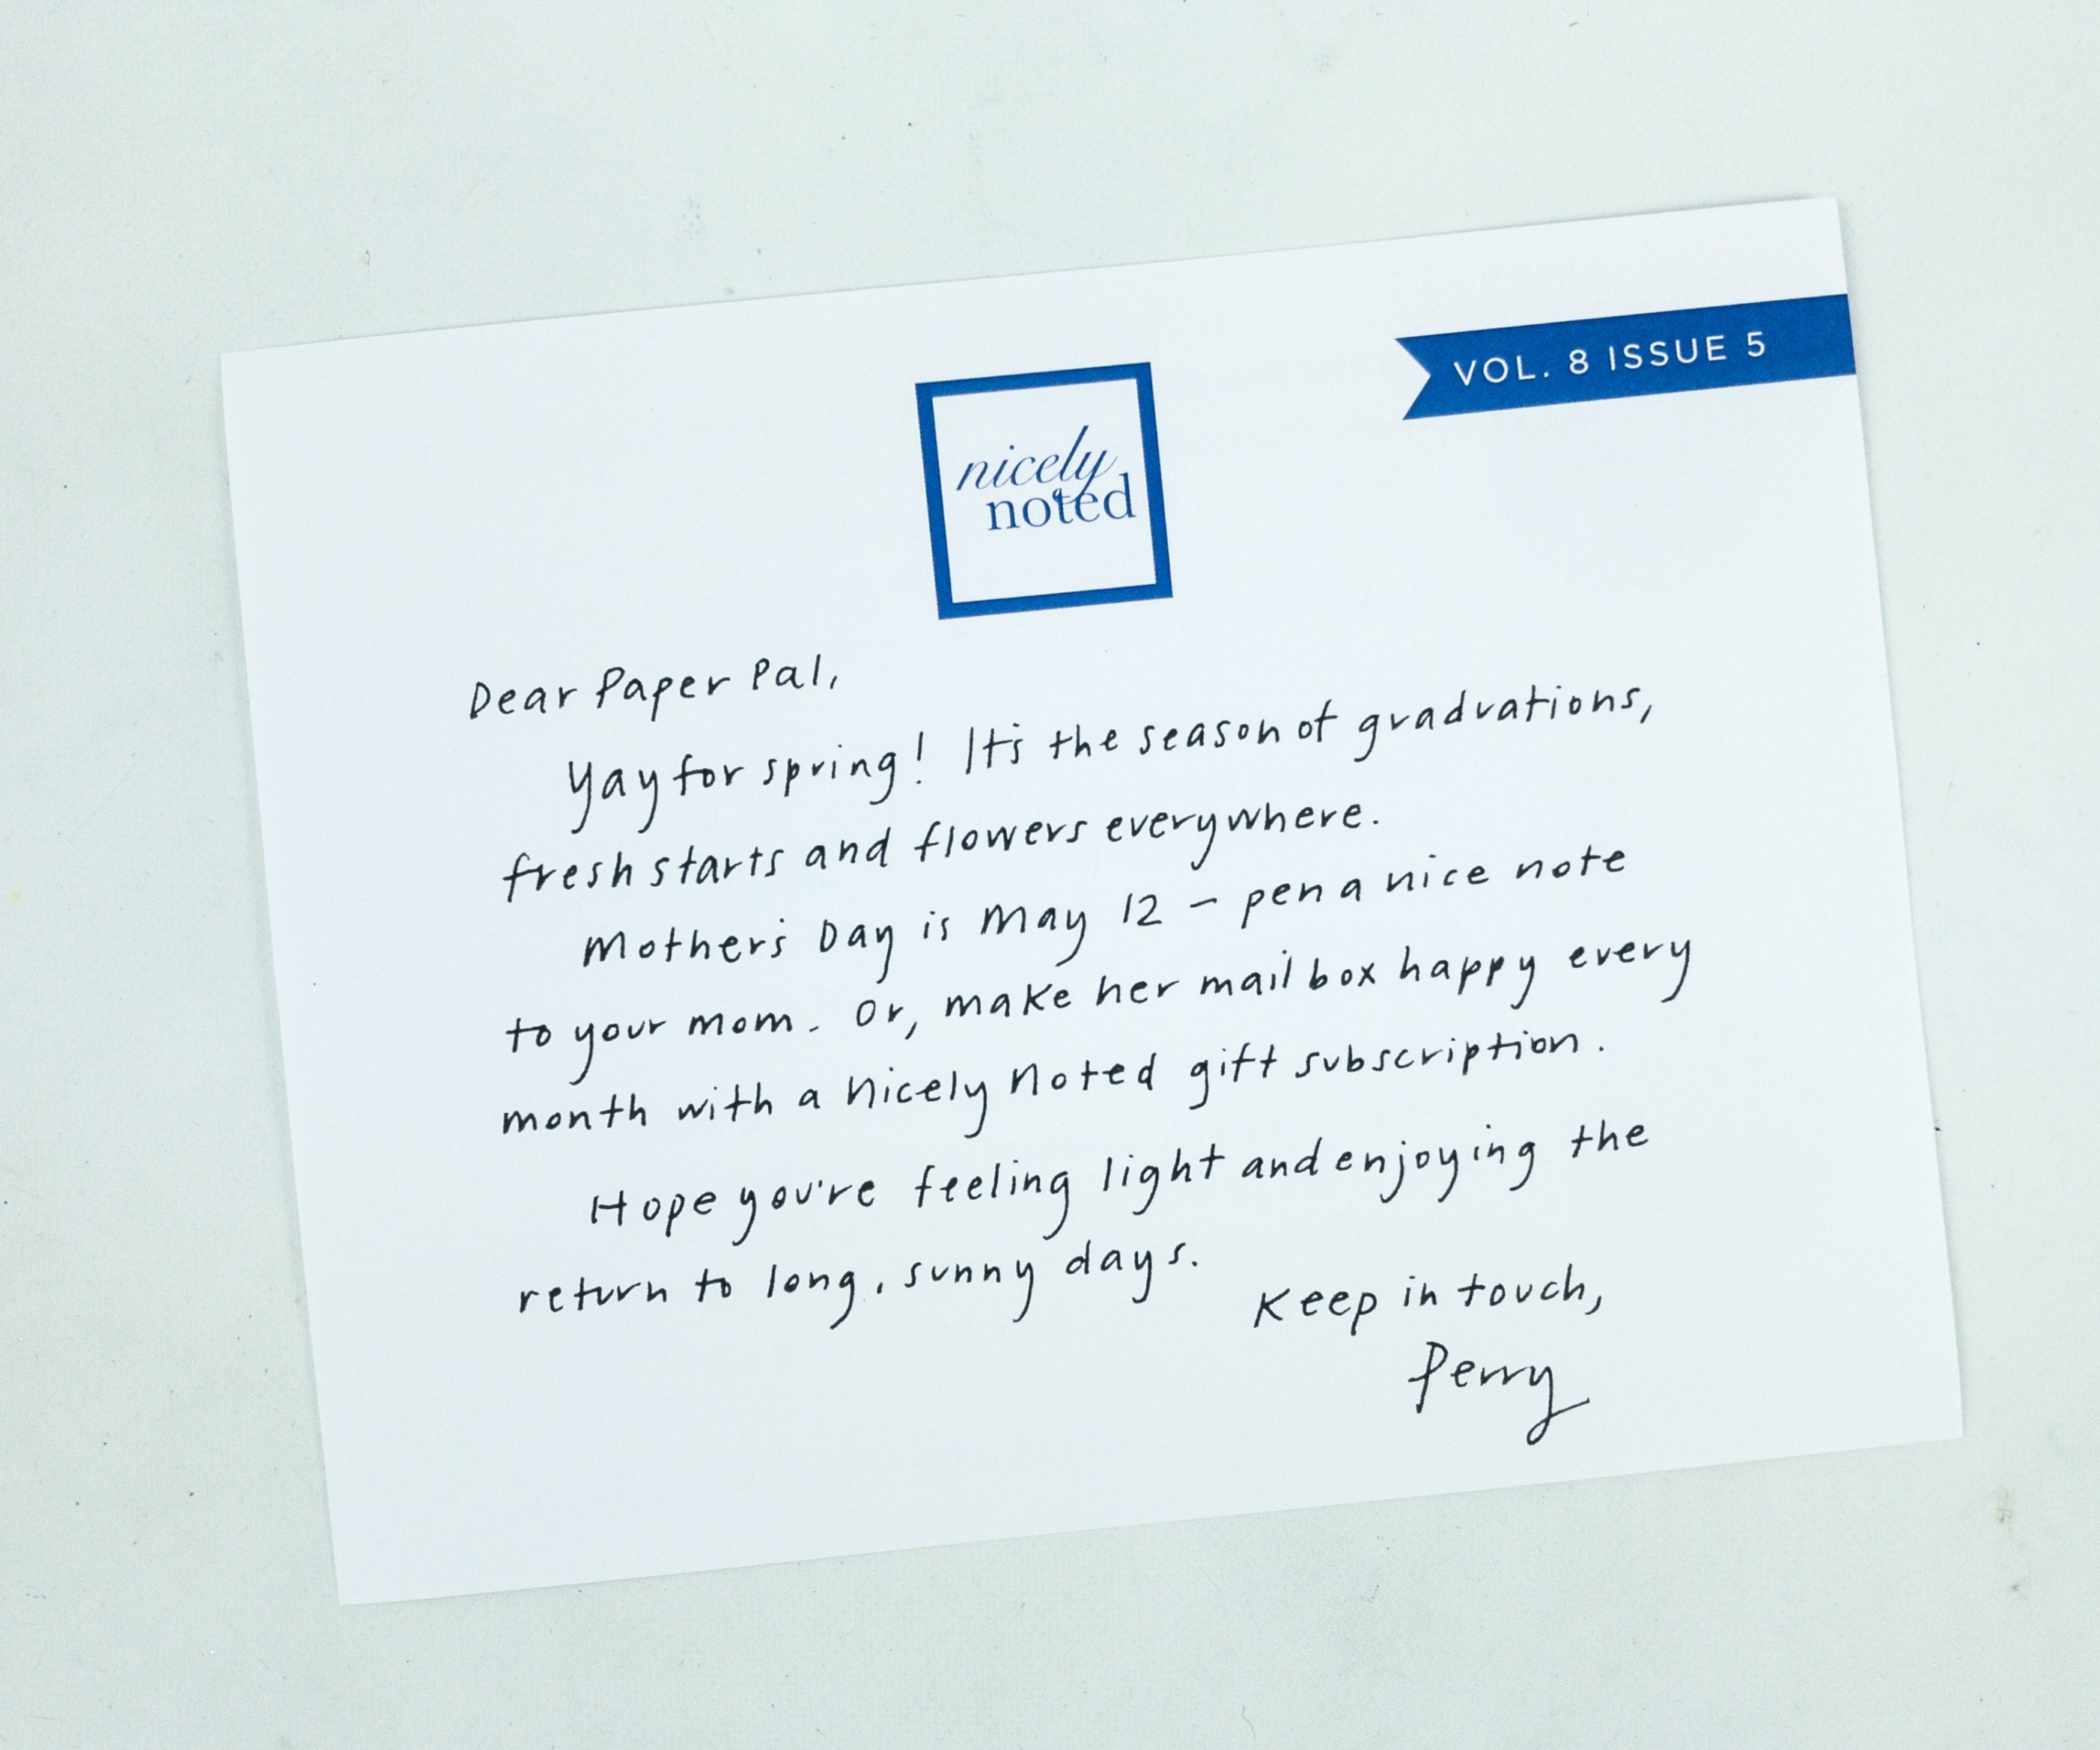 VOL. 8 ISSUE 5
nicely
noted
Dear Paper Pal,
Yay for spring! It's the season of graduations,
fresh starts and flowers everywhere.
Mother's Day is May 12 – pen a nice note
to your mom. Or, make her mailbox happy every
month with a Nicely Noted gift subscription.
Hope you're feeling light and enjoying the
return to long, sunny days.
Keep in touch,
Perry